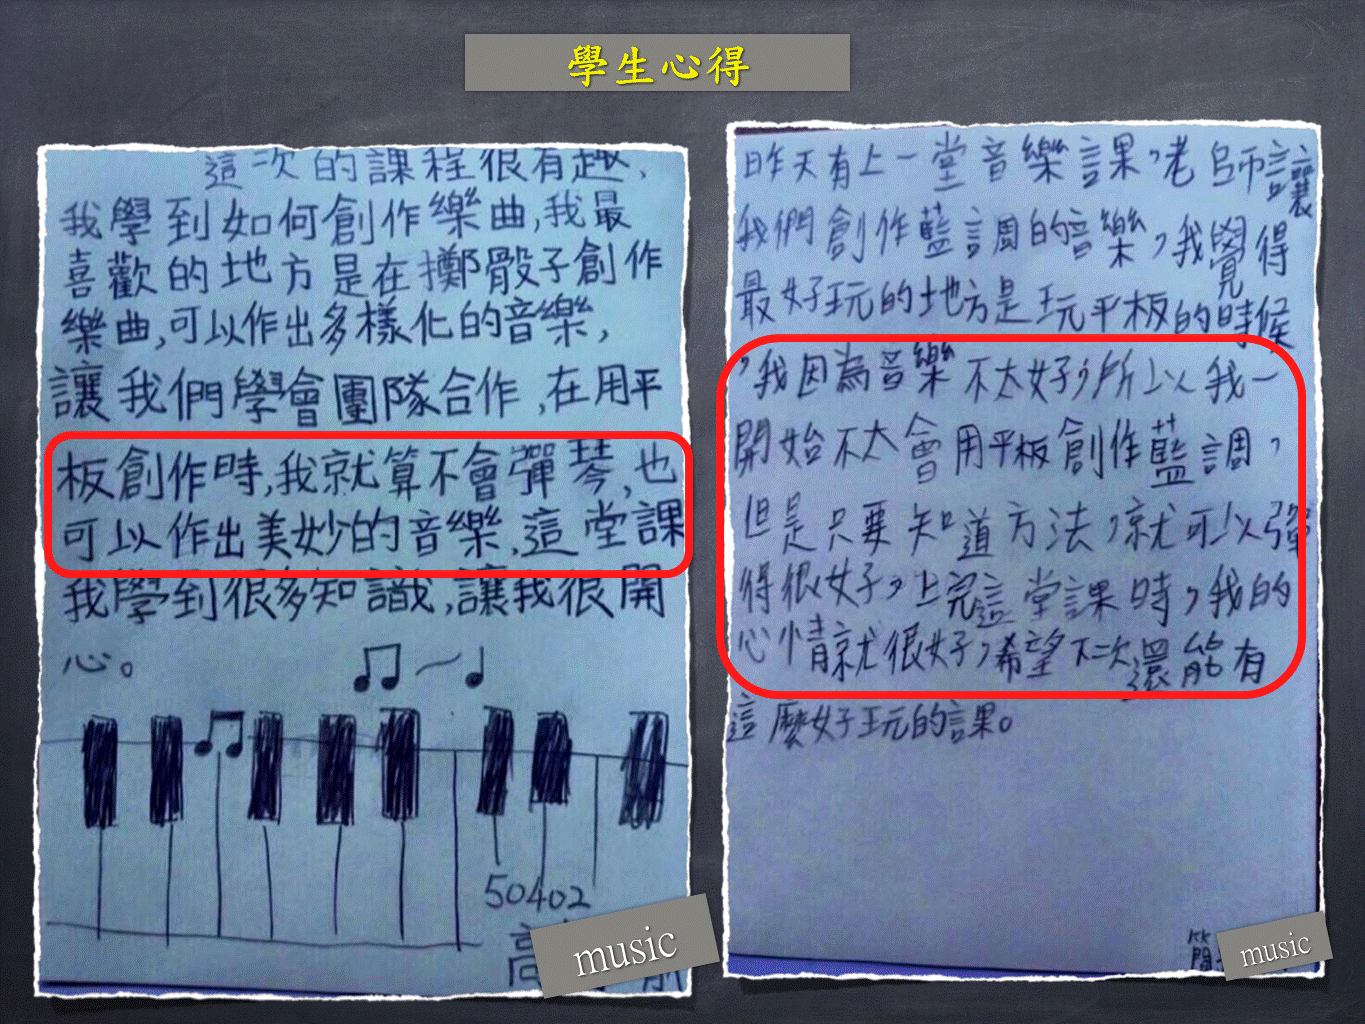 學生心得
這次的課程很有趣，
我學到如何創作樂曲,我最
喜歡的地方是在擲骰子創作
樂曲,可以作出多樣化的音樂,
讓我們學會團隊合作,在用平
板創作時,我就算不會彈琴,也
可以作出美妙的音樂,這堂課
我學到很多知識,讓我很開
心。
50402
高
music
昨天有上一堂音樂課，老師讓
我們創作藍調的音樂，我覺得
最好玩的地方是玩平板的時候
，我因為音樂不太好，所以我一
開始不太會用平板創作藍調，
但是只要知道方法，就可以彈
得很好，上完這堂課時，我的
心情就很好，希望下次還能有
這麼好玩的課。
簡
music